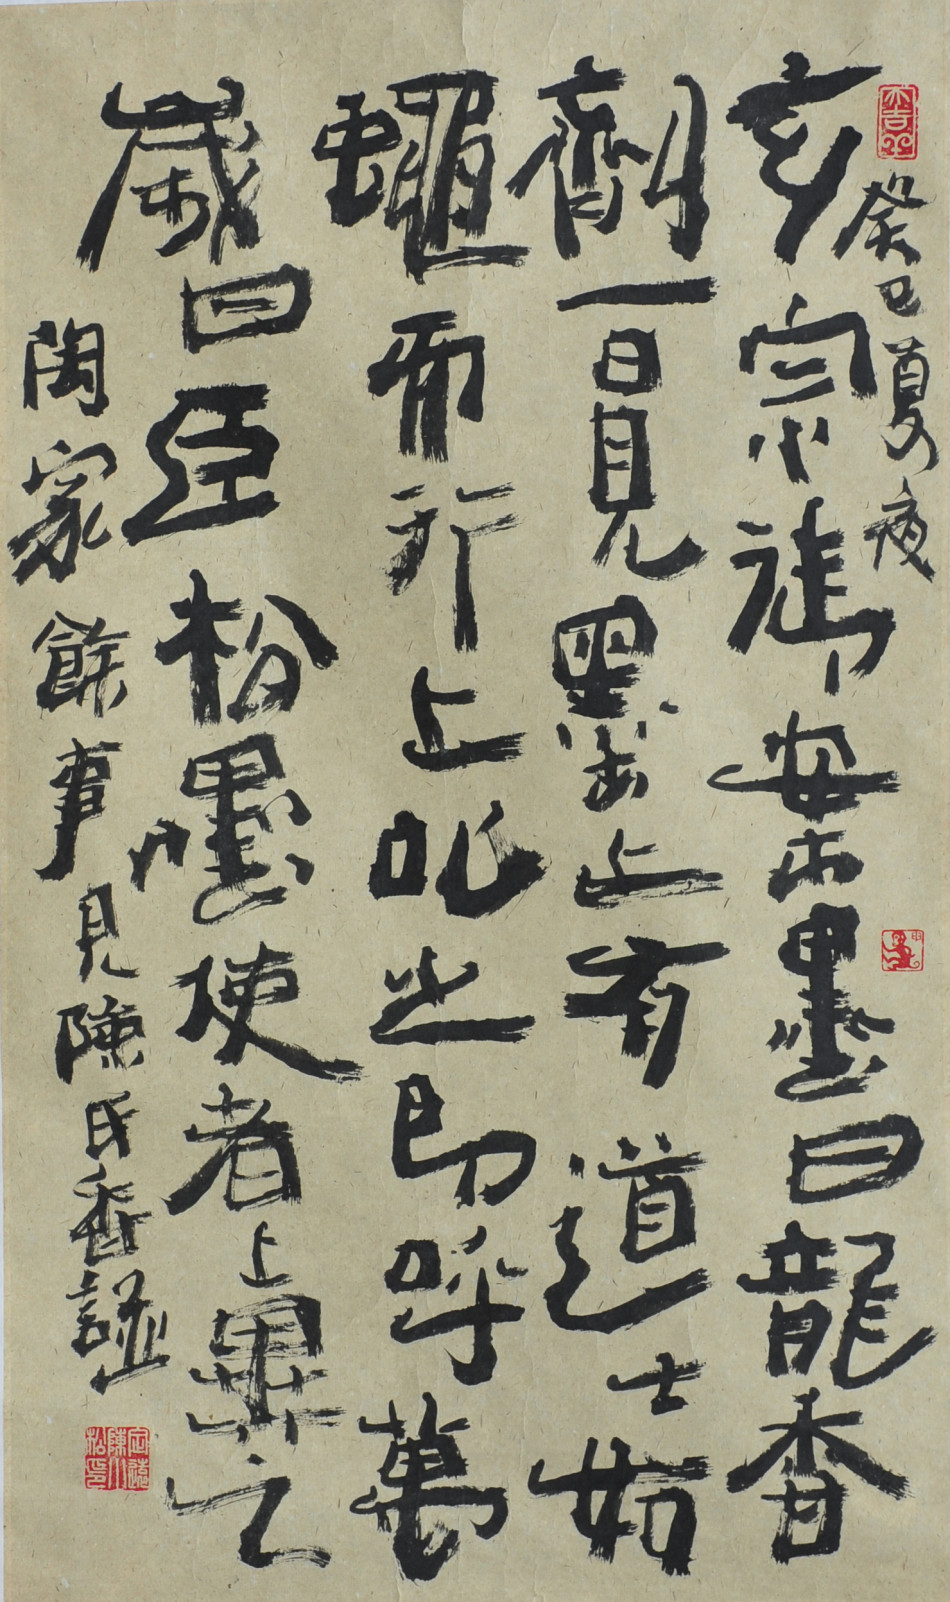 癸巳夏夜
玄宗御案墨曰龍香
劑一日見墨上有道士如
蠅而行上叱之即呼萬
歲曰臣松墨使者上異之
陶家餘事見陳氏香譜